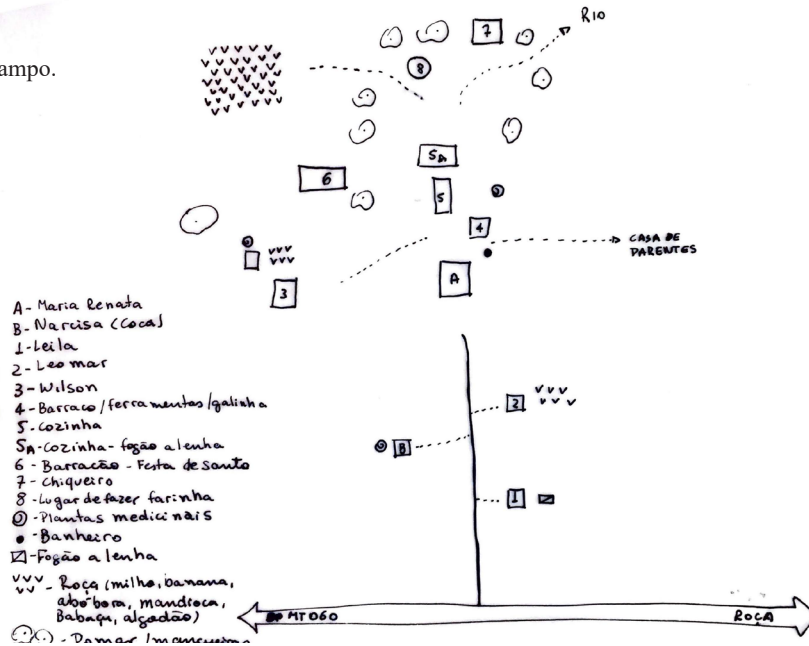 ampo.
RIO
7
8
5A
6
5
4
CASA DE
PARENTES
A
3
A- Maria Renata
B- Narcisa (Coca)
1- Leila
2- Leomar
3- Wilson
4- Barraco/ferramentas/galinha
5- Cozinha
5A- Cozinha- fogão a lenha
6 - Barracão - Festa de santo
7 - Chiqueiro
8 - Lugar de fazer farinha
- Plantas medicinais
- Banheiro
- Fogão a lenha
- Roça (milho, banana,
abóbora, mandioca,
Babaçu, algodão)
2
B
1
MT060
ROÇA